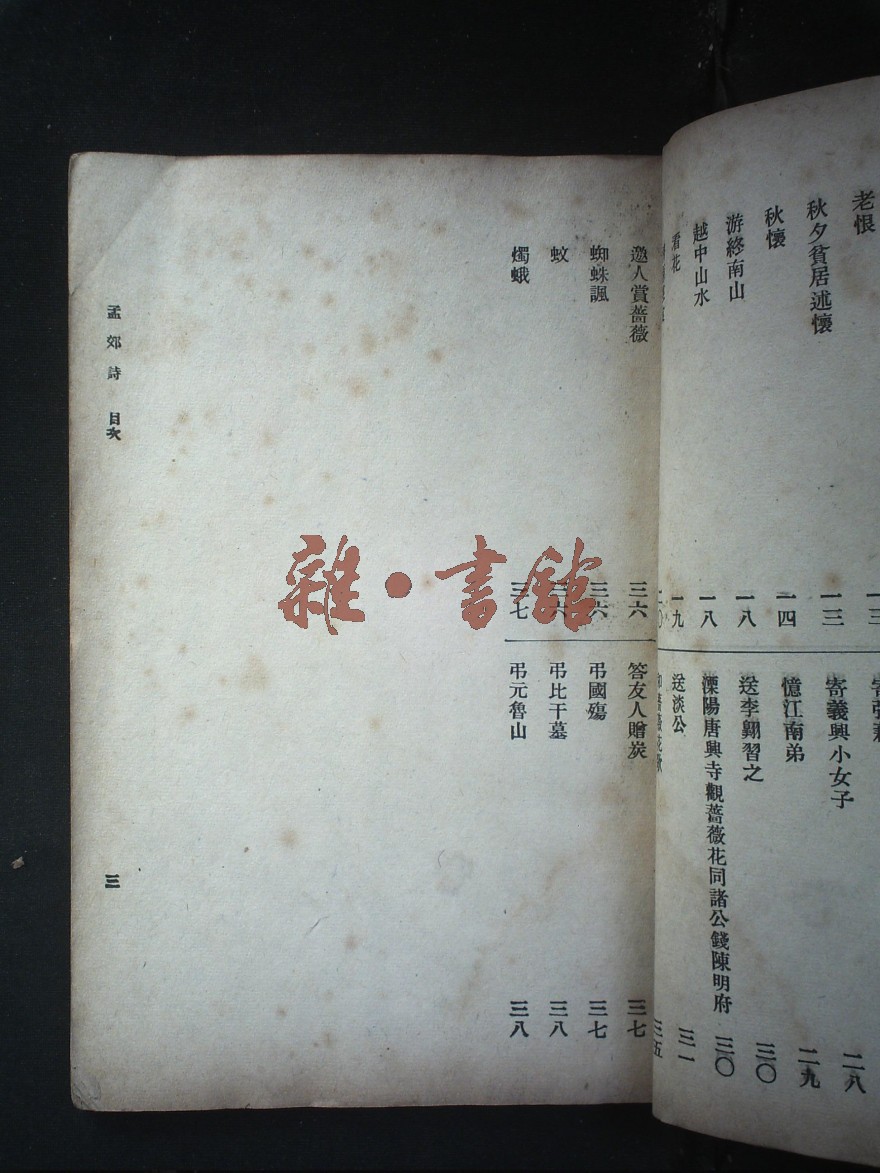 老恨 一三
秋夕貧居述懷 一三
秋懷 一四
游終南山 一八
越中山水 一八
看花 一九
二〇
寄義興小女子 二九
憶江南弟
送李翺習之 三〇
溧陽唐興寺觀薔薇花同諸公餞陳明府 三〇
送淡公 三一
三五
邀人賞薔薇 三六
蜘蛛諷 三六
蚊 三六
燭蛾 三七
答友人贈炭 三七
弔國殤 三七
弔比干墓 三八
弔元魯山 三八
孟郊詩 目次
三
雜·書館